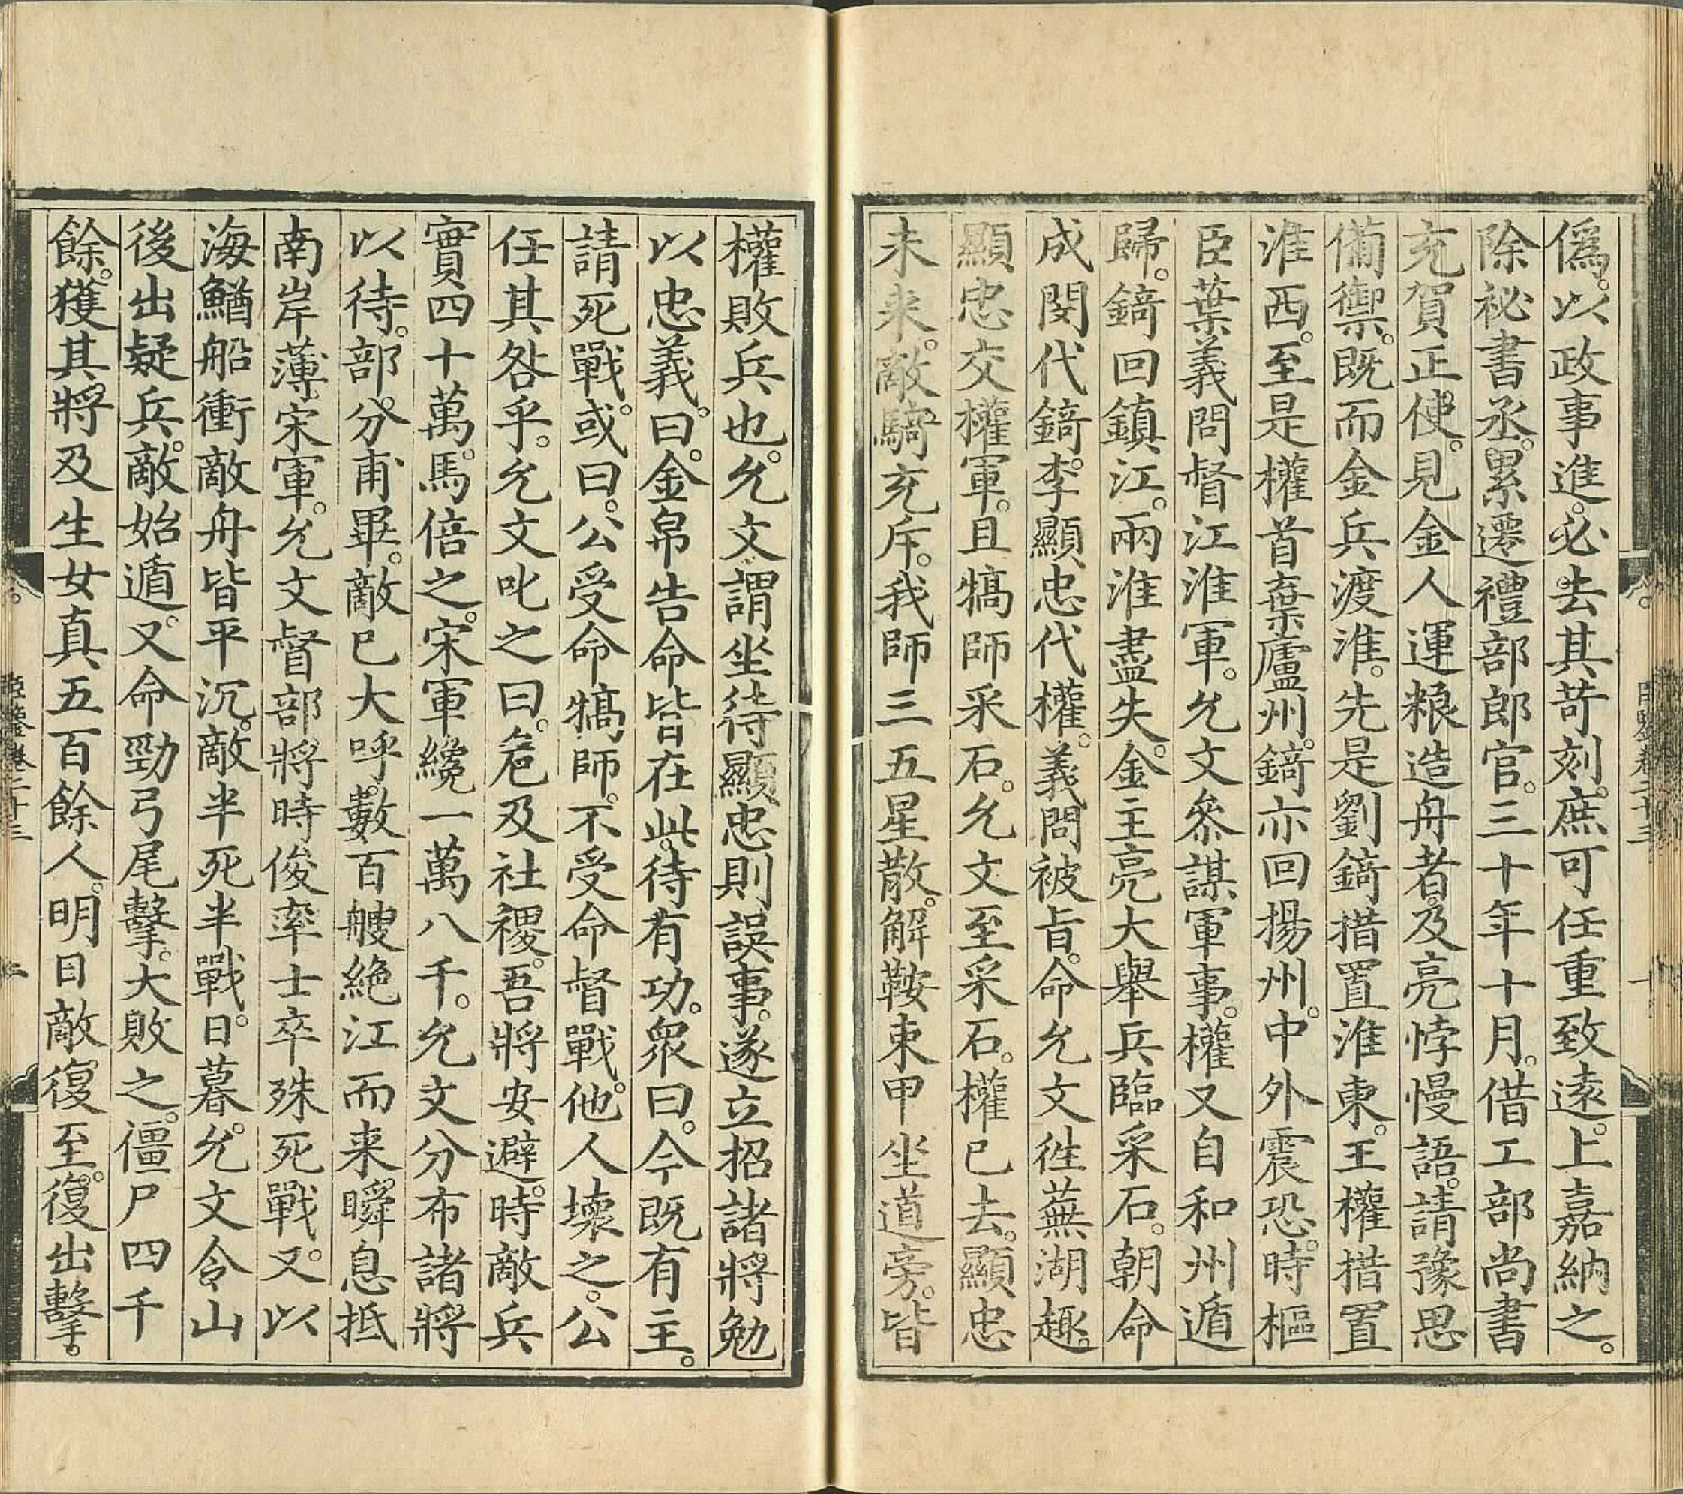 偽。以政事進。必去其苛刻。庶可任重致遠。上嘉納之。
除祕書丞。累遷禮部郎官。三十年十月。借工部尚書
充賀正使。見金人運粮造舟者。及亮悖慢語。請豫思
備禦。既而金兵渡淮。先是劉錡措置淮東。王權措置
淮西。至是權首棄廬州。錡亦回揚州。中外震恐。時樞
臣葉義問督江淮軍。允文叅謀軍事。權又自和州遁
歸。錡回鎮江。兩淮盡失。金主亮大舉兵臨采石。朝命
成閔代錡。李顯忠代權。義問被旨。命允文徃蕪湖趣
顯忠交權軍。且犒師采石。允文至采石。權已去。顯忠
未来。敵騎充斥。我師三五星散。解鞍束甲坐道旁。皆
權敗兵也。允文謂坐待顯忠則誤事。遂立招諸將勉
以忠義。曰。金帛告命皆在此。待有功。衆曰。今既有主。
請死戰。或曰。公受命犒師。不受命督戰。他人壞之。公
任其咎乎。允文叱之曰。危及社稷。吾將安避。時敵兵
實四十萬。馬倍之。宋軍纔一萬八千。允文分布諸將
以待。部分甫畢。敵已大呼。數百艘絶江而来。瞬息抵
南岸。薄宋軍。允文督部將時俊率士卒殊死戰。又以
海鰌船衝敵舟皆平沉。敵半死半戰。日暮。允文令山
後出疑兵。敵始遁。又命勁弓尾擊。大敗之。僵尸四千
餘。獲其將及生女真五百餘人。明日敵復至。復出擊。
臣鑒卷二十三
二